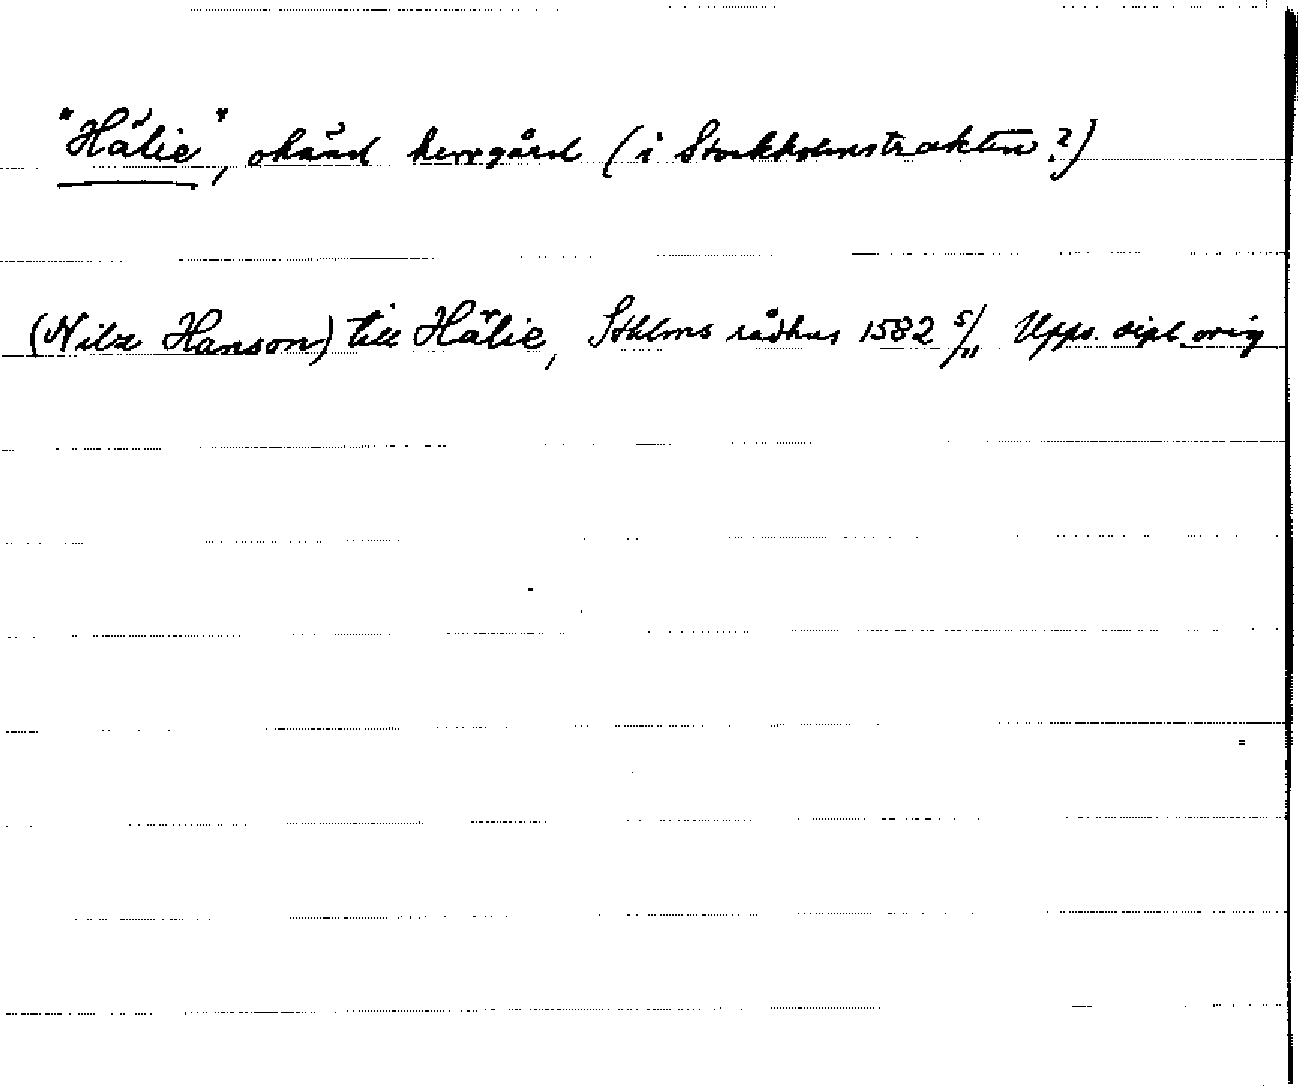 "Hälie", okänd herrgård (i Stockholmstrakten?)
(Nilz Hanson) till Hälie, Sthlms rådhus 1582 5/11 Upps. dipl. orig